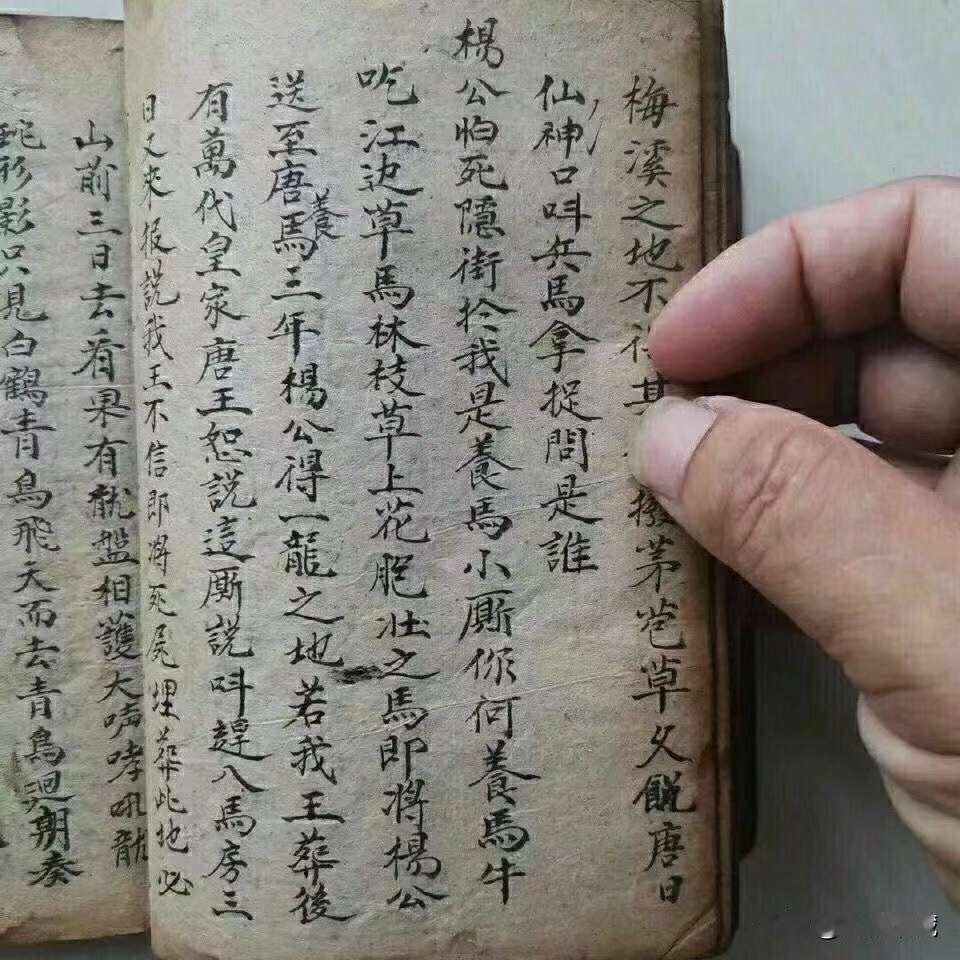 梅溪之地不得其撥茅苞草又饒唐日
仙神口呌兵馬拿捉問是誰
楊公怕死隱街扵我是養馬小厮你何養馬牛
吃江边草馬林枝草上花肥壯之馬即將楊公
送至唐馬養三年楊公得一龍之地若我王葬後
有萬代皇家唐王恕說這厮說呌趕八馬房三
日又來报說我王不信即將死屍埋葬此地必
山前三日去看果有龍盤相護大哮吼龍
蛇形影只見白鶴青鳥飛天而去青鳥迴朝奏